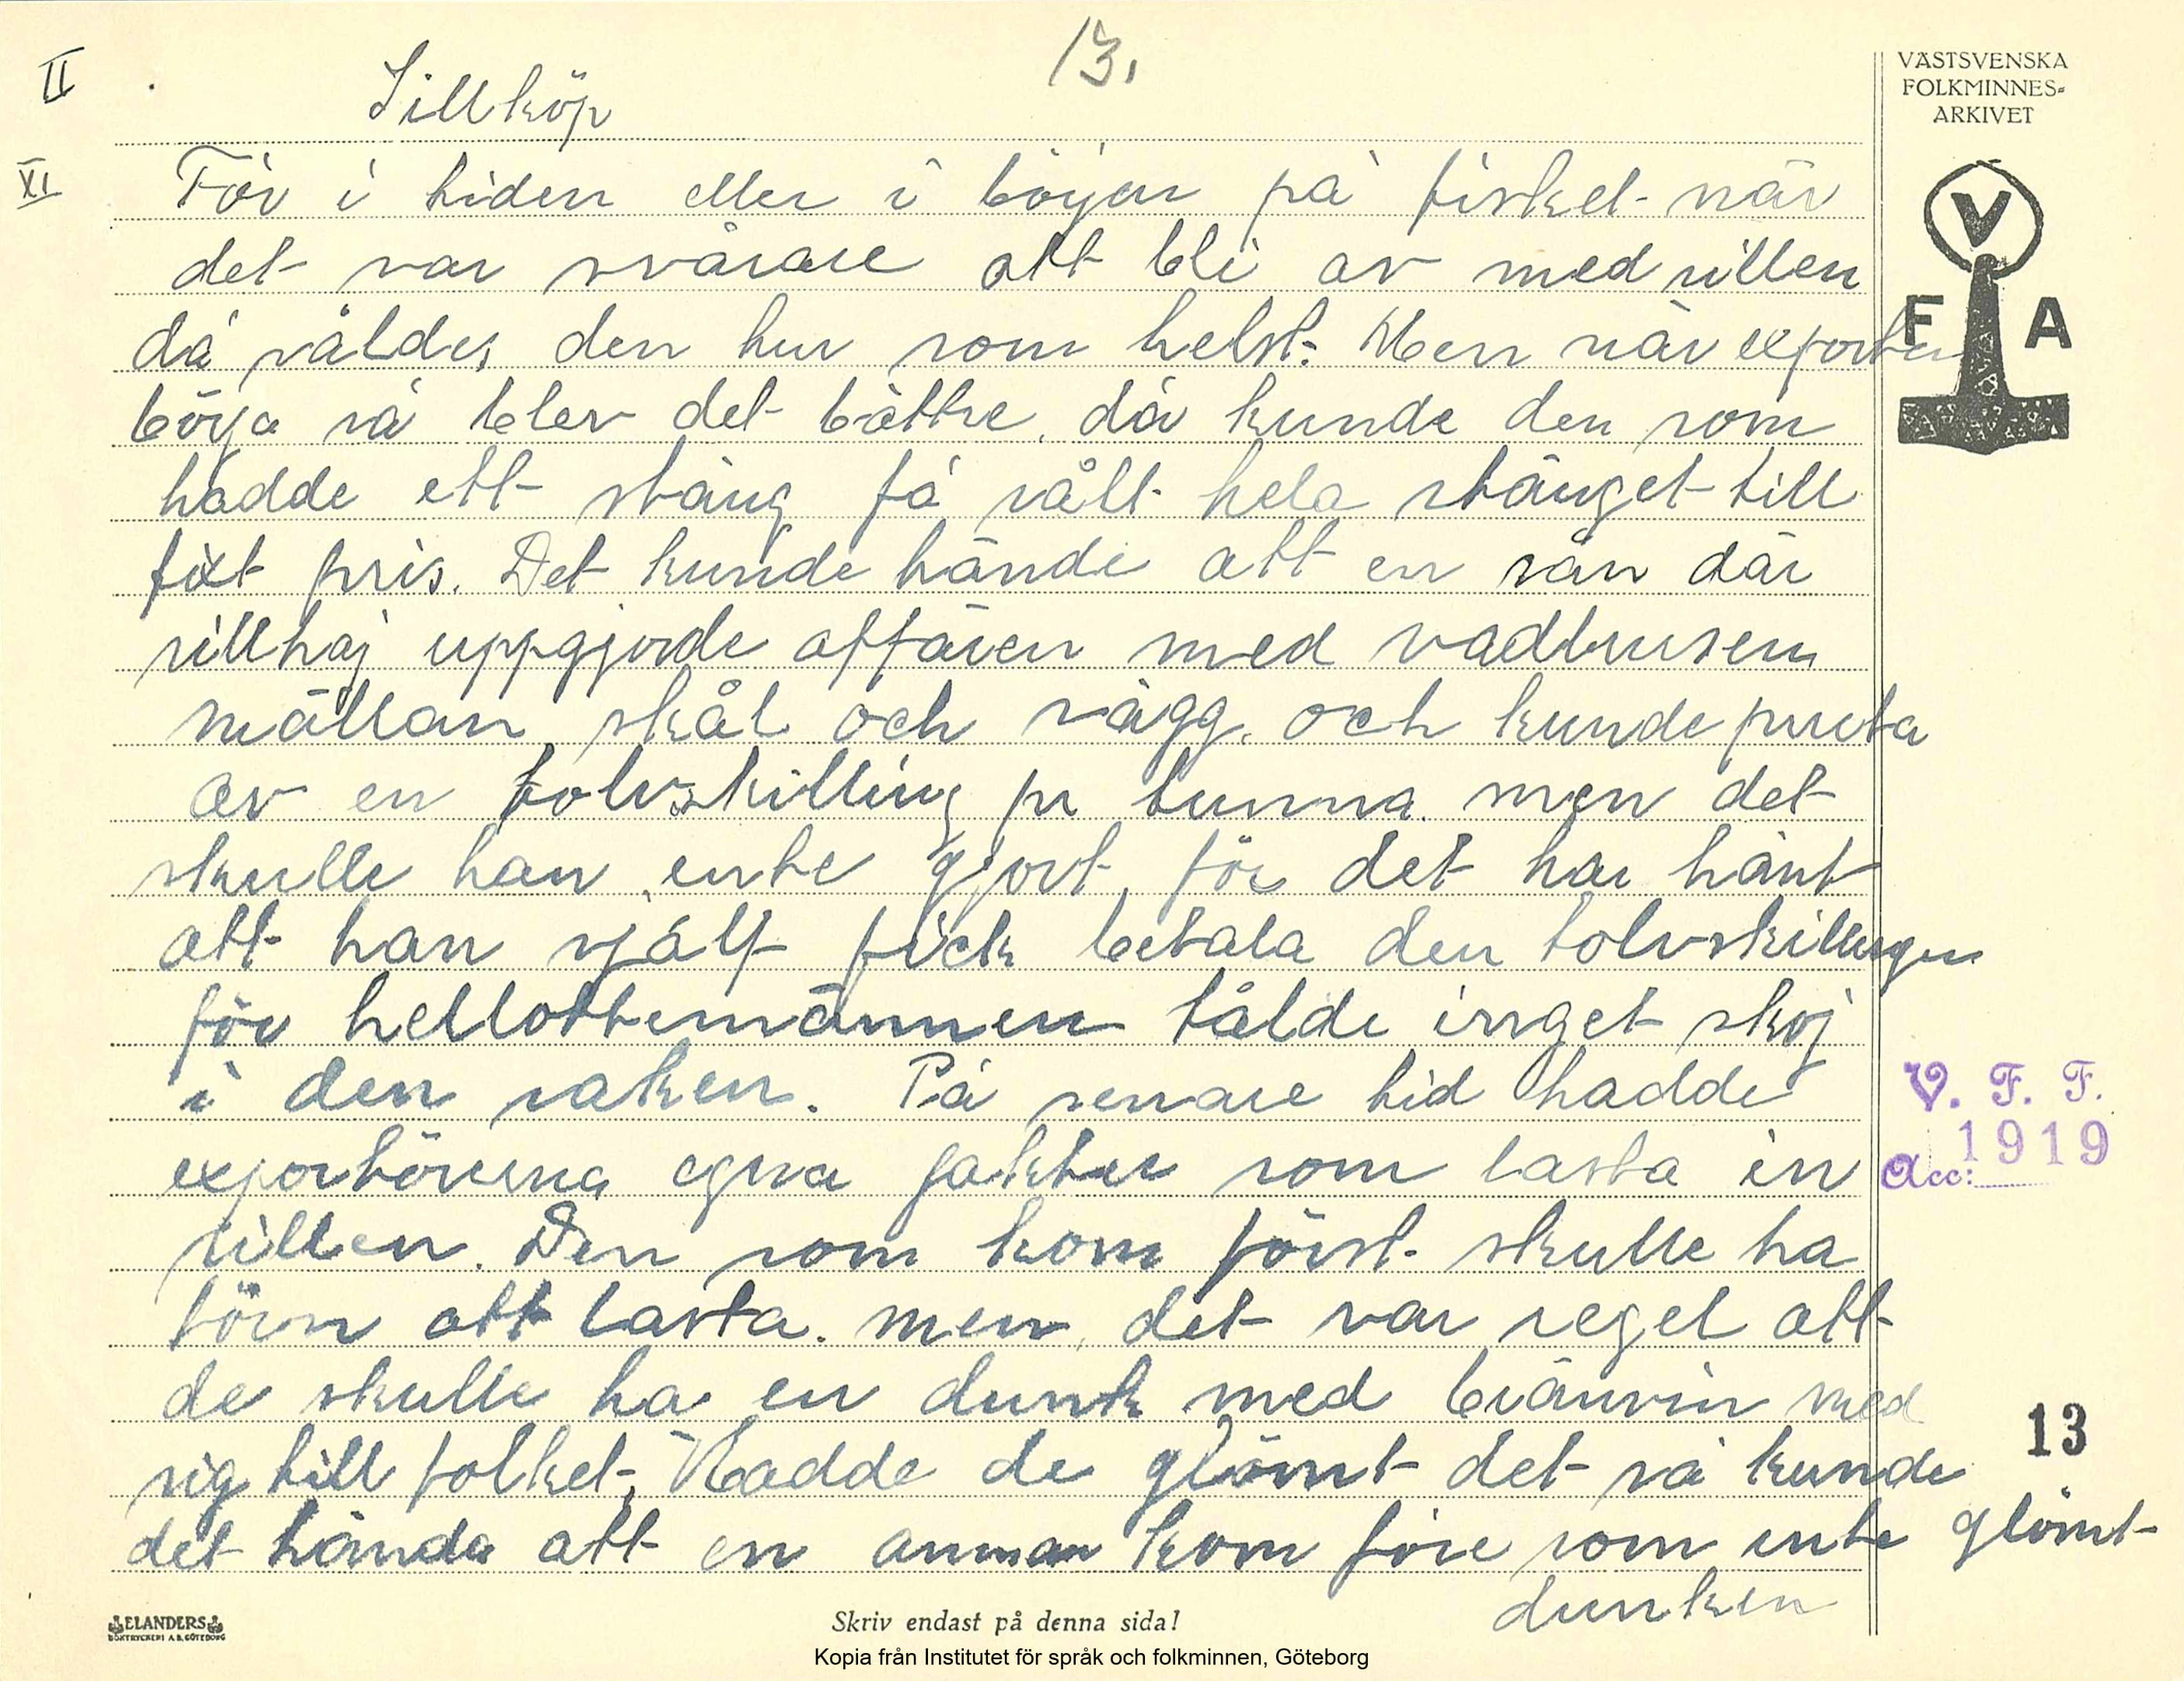 13.
II
Sillköp
VÄSTSVENSKA
FOLKMINNES-
ARKIVET
XI
För i tiden eller i böjan på fisket när
det var svårare att bli av med sillen
då såldes den hur som helst. Men när exporten
böja så blev det bättre, då kunde den som
hadde ett stäng få sålt hela stänget till
fixt pris. Det kunde hände att en sån där
sillhaj uppgjorde affären med vadbusen
mällan skål och vägg. och kunde pruta
av en tolvskilling pr tunna. men det
skulle han ente gjort, för det har hänt
att han själf fick betala den tolvskillingen
för hellottemännen tålde inget skoj
i den saken. På senare tid hadde
exportörerna egna jakter som lasta in
sillen. Den som kom först skulle ha
törn att lasta. men det var regel att
de skulle ha en dunk med bränvin med
sig till folket, Hadde de glömt det så kunde
det hända att en annan kom före som ente glömt
dunken
V
F A
V. F. F.
1919
Acc:
13
ELANDERS
BOKTRYCKERI A.B. GÖTEBORG
Skriv endast på denna sida!
Kopia från Institutet för språk och folkminnen, Göteborg